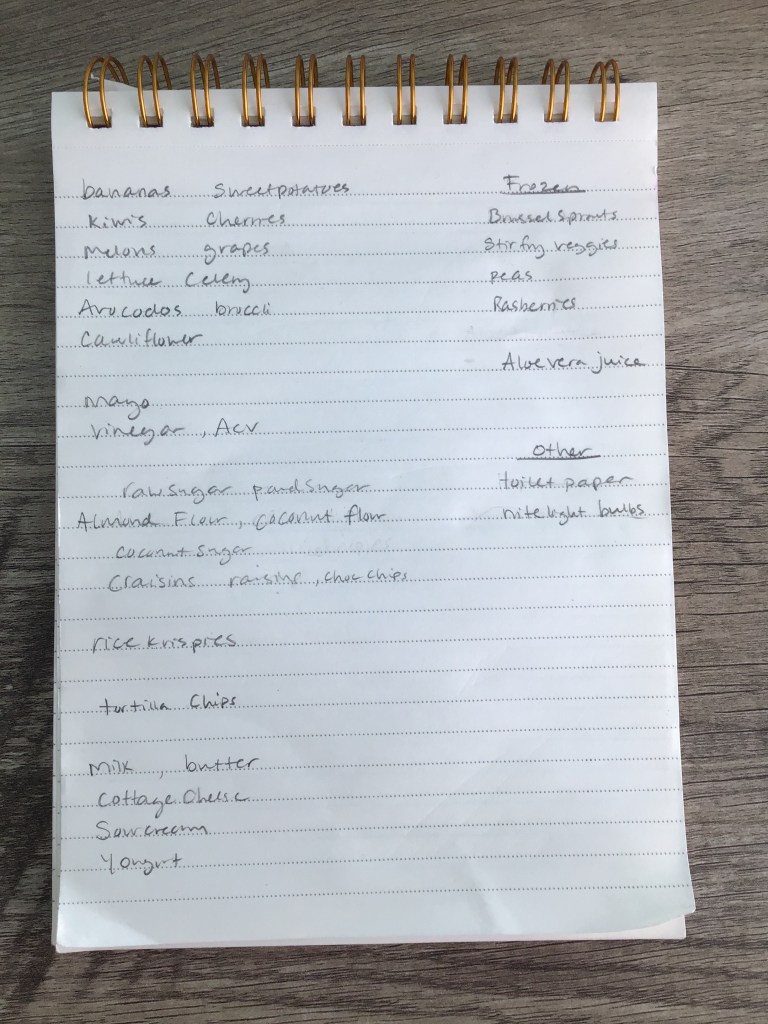 bananas Sweetpotatoes
Kiwis Cherries
Melons grapes
lettuce Celery
Avocodos broccli
Cauliflower
Mayo
vinegar , ACV
raw sugar powd sugar
Almond Flour , coconut flour
coconut sugar
Craisins raisins , choc chips
rice krispies
tortilla Chips
Milk , butter
Cottage Cheese
Sour cream
Yorgurt
Frozen
Brussel Sprouts
Stirfry veggies
peas
Rasberries
Aloe vera juice
Other
toilet paper
nitelight bulbs